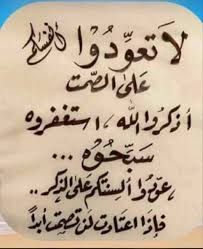 لا تعوِّدُوا أنفسكم
على الصمت
أذكرُوا الله ,استغفروه
سَبِّحُوه ...
عوِّدُوا ألسنتكم على الذكر ..
فإذا اعتادت لن تصمت أبداً